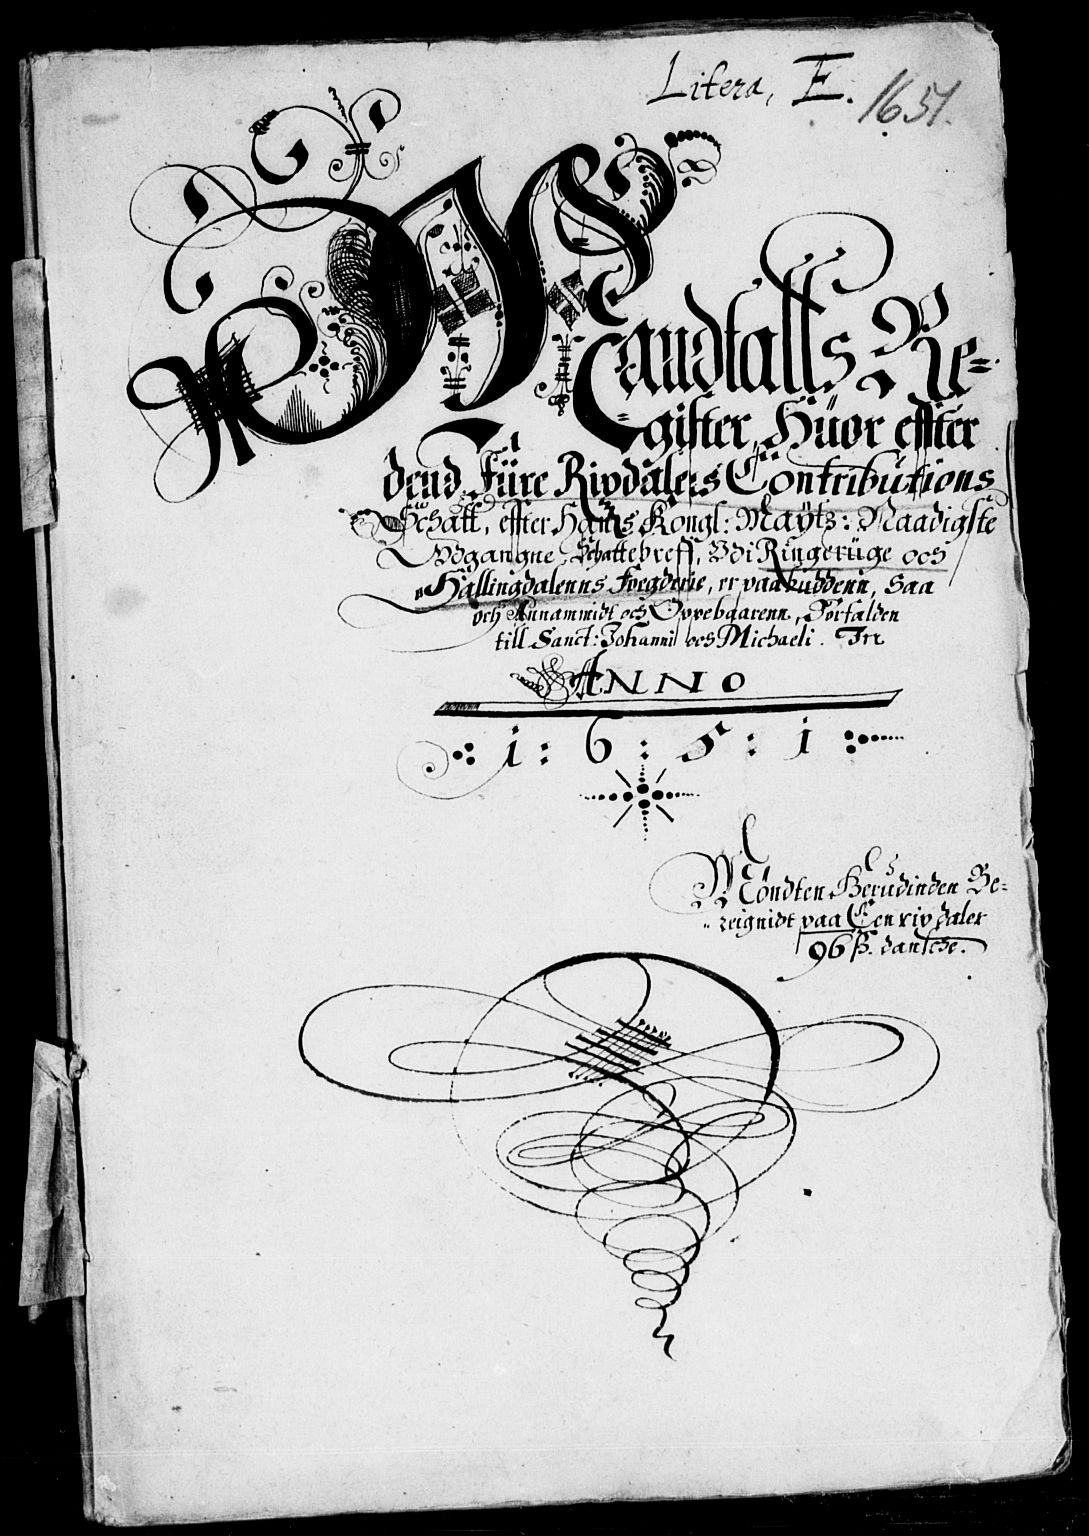 Litera, E. 1651.
Mandtalls Re-
gister, Hüor effter
dend Füre Rixdalers Contributions
Schatt, effter Hans Kongl: Maÿtz: Naadigste
Udgangne Schattebreff, Udi Ringerüge och
Hallingdalenns Foegderie, er paabuddenn, Saa
och Annammidt och Oppebaarenn, Forfalden
till Sanct: Johannis och Michaeli. Irr
ANNO
1: 6: 5: 1
Möndten Herudinden Be-
reignidt paa Een rixdaler
96 ß. dansche.